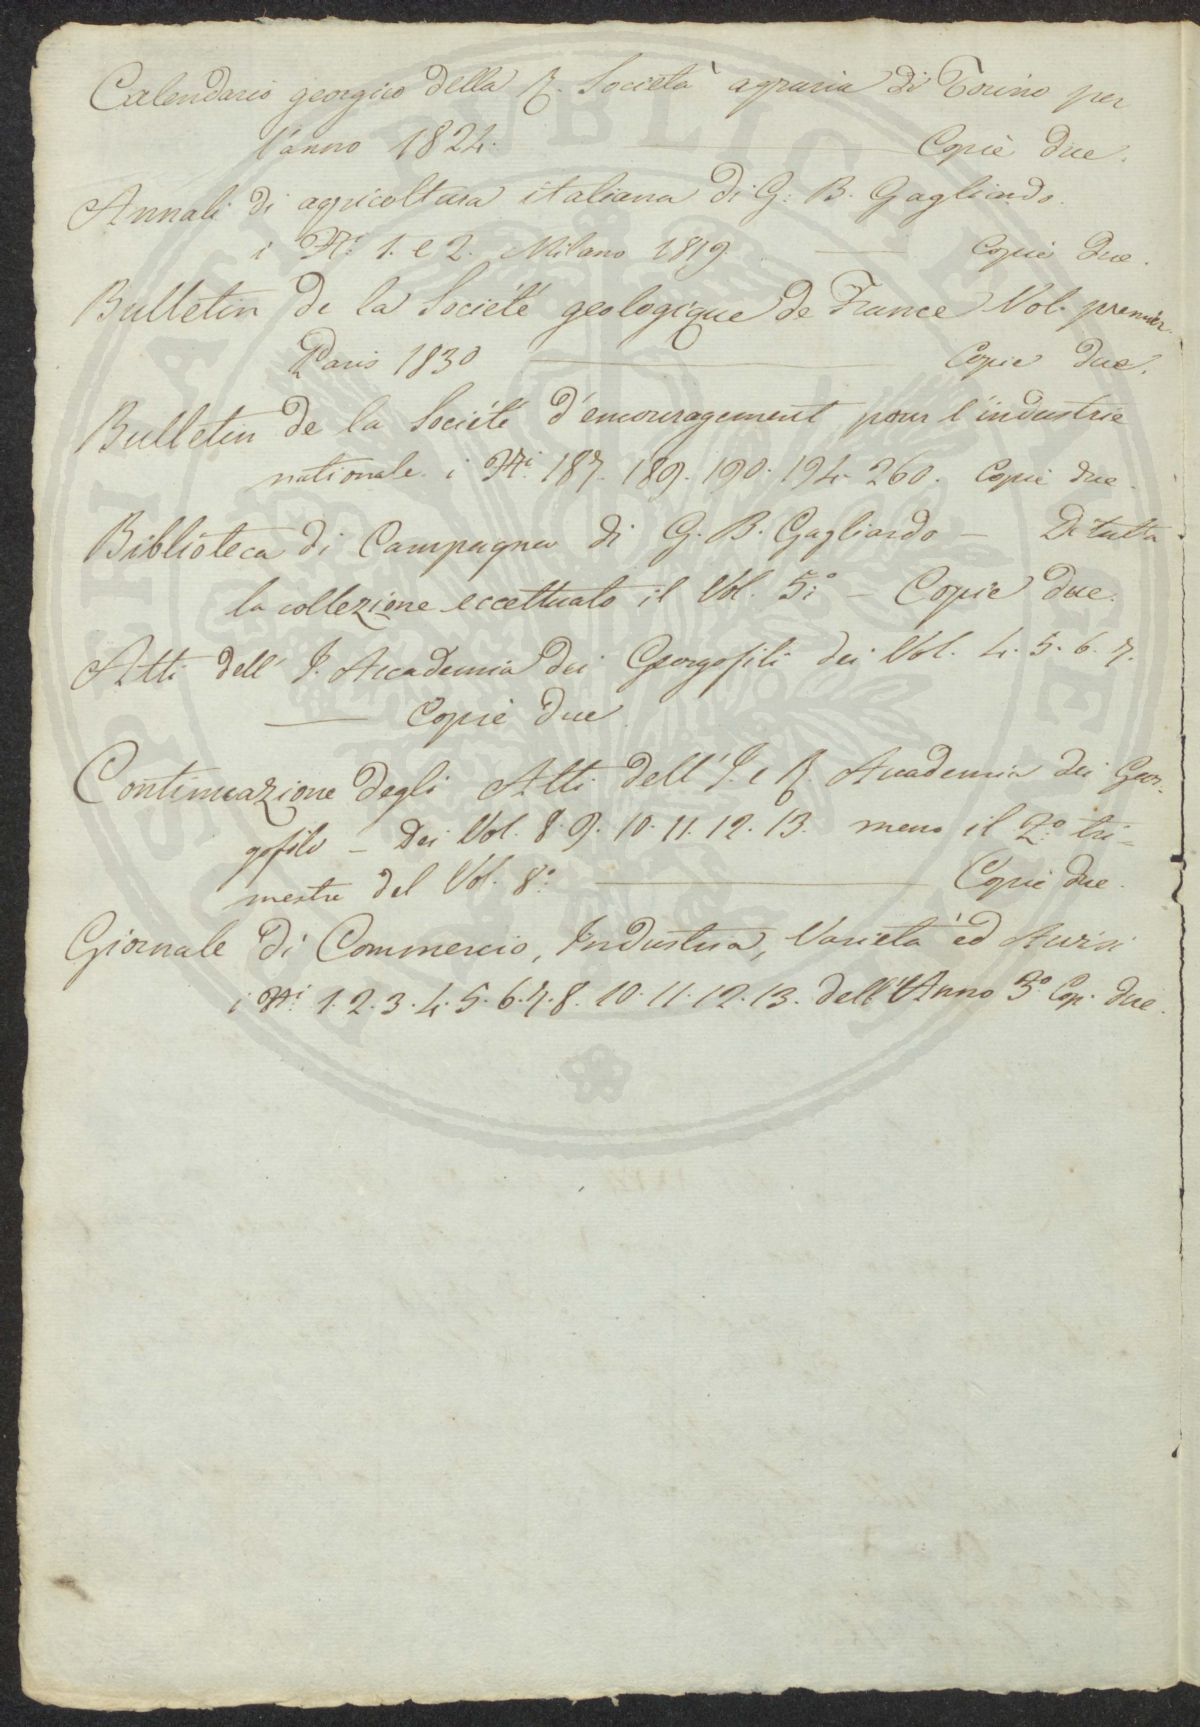 Calendario georgico della R. Società agraria di Torino per
l'anno 1824. Copie due.
Annali di agricoltura italiana di G. B. Gagliardo.
i Ni. 1. e 2. Milano 1819. Copie due.
Bulletin de la Société geologique de France Vol. premier.
Paris 1830 Copie due.
Bulletin de la Société d'encouragement pour l'industrie
nationale. i Ni. 187. 189. 190. 194. 260. Copie due.
Biblioteca di Campagna di G. B. Gagliardo – Di tutta
la collezione eccettuato il Vol. 5° – Copie due.
Atti dell' I. Accademia dei Georgofili dei Vol. 4. 5. 6. 7.
Copie due
Continuazione degli Atti dell' I. e R. Accademia dei Geor-
gofili – Dei Vol. 8. 9. 10. 11. 12. 13. meno il 2° tri-
mestre del Vol. 8° Copie due.
Giornale di Commercio, Industria, Varietà ed Avvisi
i Ni. 1. 2. 3. 4. 5. 6. 7. 8. 10. 11. 12. 13. dell'Anno 3° Cop. due.